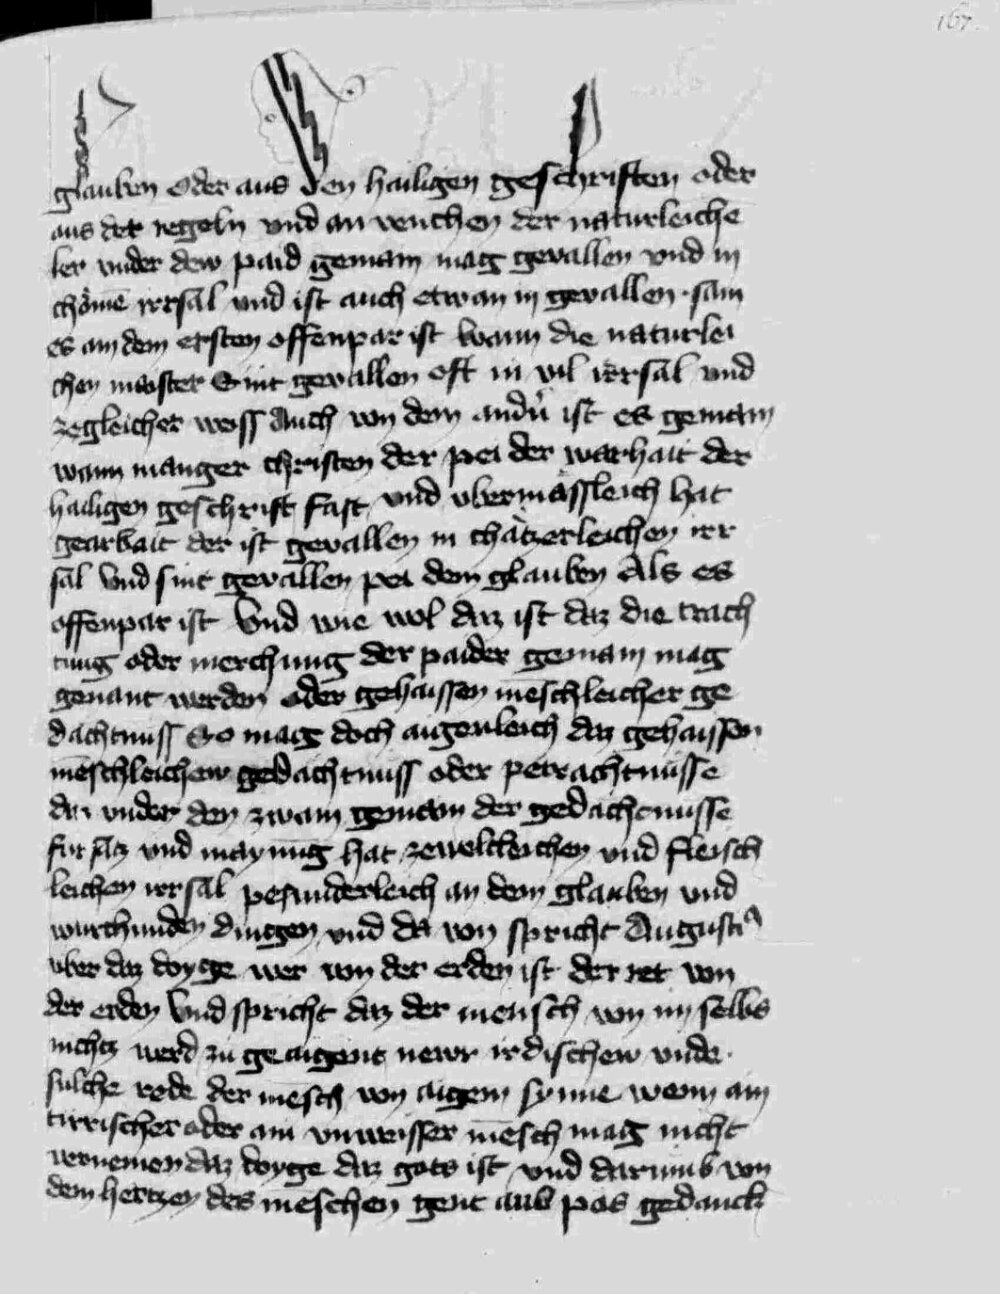 167
glauben oder aus den hailigen geschriften oder
aus der regeln vnd an weuchen der naturleiche
ler vnder dew paid gemain mag gevallen vnd in
chömē irrsal vnd ist auch etwan in gevallen · sam
es an dem ersten offenpar ist wann die naturlei
chen maister sint gevallen oft in vil irrsal vnd
zegleicher weiss Auch von dem andn̄ ist es gemain
wann manger christen der pei der warhait der
hailigen geschrift fast vnd vbermässleich hat
gearbait der ist gevallen in chätzerleichen irr
sal vnd sint gevallen pei dem glauben Als es
offenpar ist Vnd wie wol daz ist daz die trach
tung oder merchung der paider gemain mag
genant werden oder gehaissen mēschleicher ge
dachtnuss So mag doch aigenleich daz gehaissen
mēschleichew gedachtnuss oder petrachtnusse
daz vnder den zwain gemain der gedachtnusse
fur satz vnd maynūg hat zeweltleichen vnd fleisch
leichen irrsal pesunderleich an dem glauben vnd
wurchunden dingen vnd da von spricht Augusti9
vber daz ewyge wer von der erden ist der ret von
der erden Vnd spricht daz der mensch von im selbs
nichtz werd zu geaigent newr irdischew vnde ·
sulche rede der mēsch von aigem synne wenn ain
tirrischer oder ain vnweisser mēsch mag nicht
vernemen daz ewyge daz gots ist vnd darumb von
dem hertzen des meschen gent aus pos gedanck